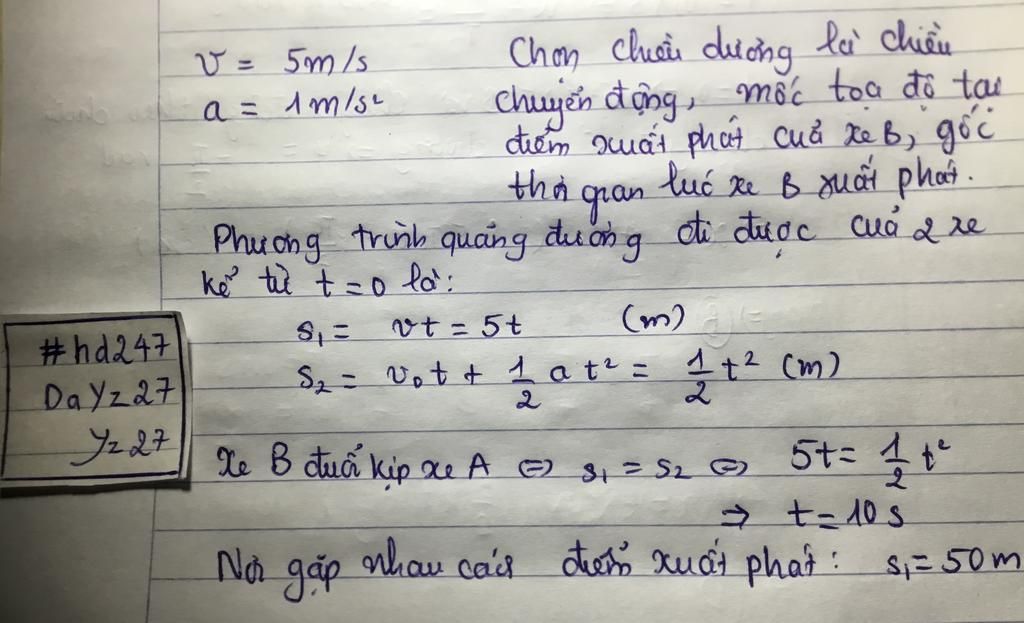 v = 5m/s
a = 1m/s²
Chọn chiều dương là chiều
chuyển động, mốc tọa độ tại
điểm xuất phát của xe B, gốc
thời gian lúc xe B xuất phát.
Phương trình quãng đường đi được của 2 xe
kể từ t = 0 là:
s₁ = vt = 5t (m)
s₂ = v₀t + 1/2 at² = 1/2 t² (m)
#hd247
DaYz27
Yz27
Xe B đuổi kịp xe A ⇔ s₁ = s₂ ⇔ 5t = 1/2 t²
⇒ t = 10 s
Nơi gặp nhau cách điểm xuất phát: s₁ = 50 m